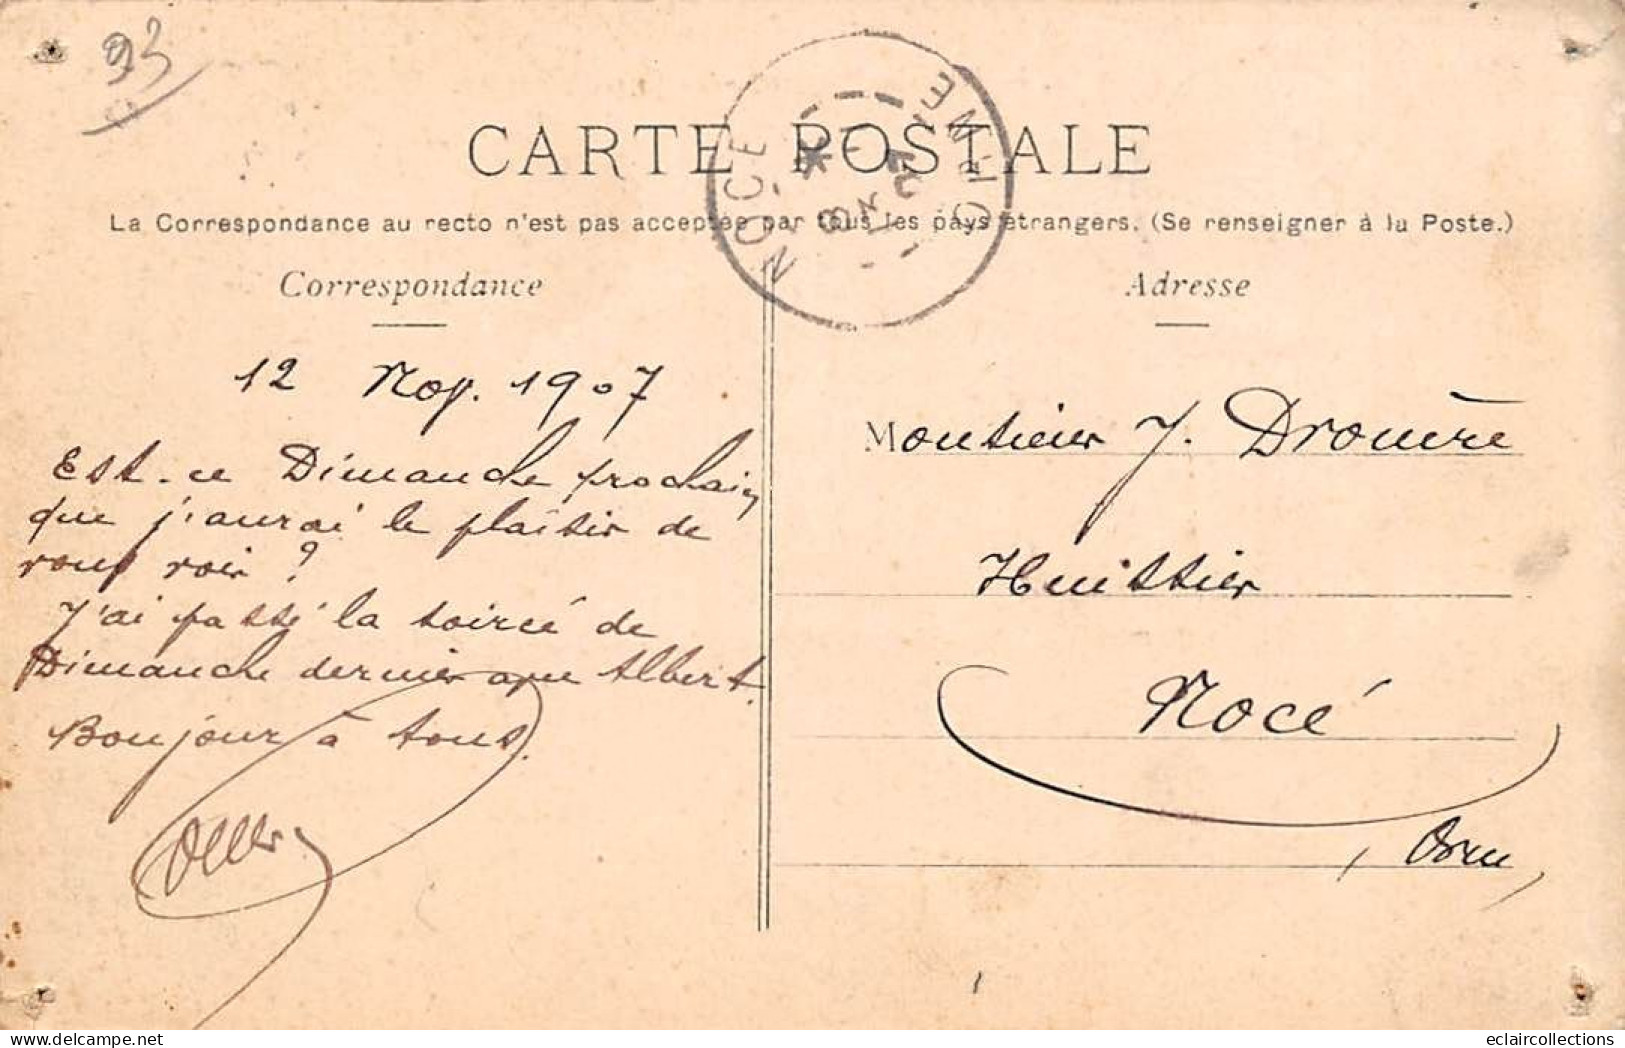 93
CARTE POSTALE
La Correspondance au recto n'est pas acceptée par tous les pays étrangers. (Se renseigner à la Poste.)
NOCÉ
ORNE
Correspondance
12 Nov. 1907
Est-ce Dimanche prochain
que j'aurai le plaisir de
vous voir ?
J'ai passé la soirée de
Dimanche dernier avec Albert.
Bonjour à tous.
Adresse
Monsieur J. Drouère
Huissier
Nocé
(Orne)
eclaircollections